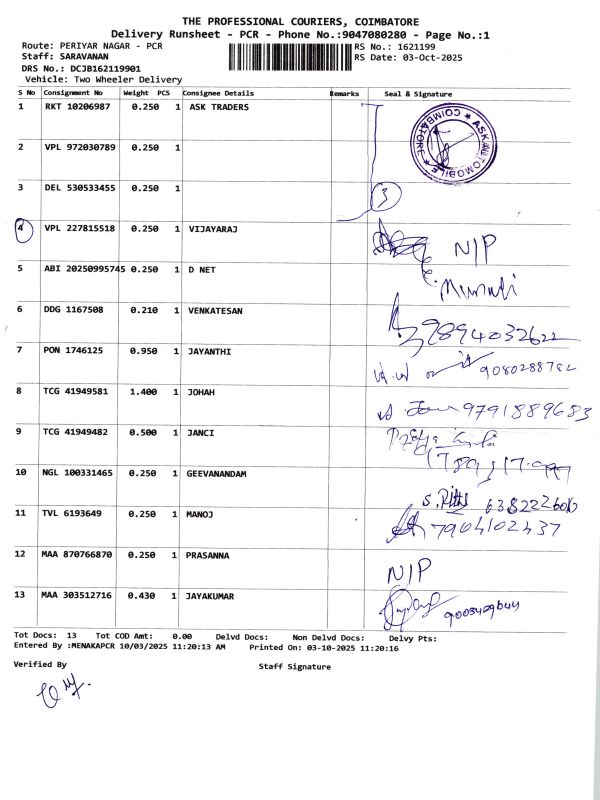 THE PROFESSIONAL COURIERS, COIMBATORE
Delivery Runsheet - PCR - Phone No.:9047080280 - Page No.:1
Route: PERIYAR NAGAR - PCR RS No.: 1621199
Staff: SARAVANAN RS Date: 03-Oct-2025
DRS No.: DCJB162119901
Vehicle: Two Wheeler Delivery
S No Consignment No Weight PCS Consignee Details Remarks Seal & Signature
1 RKT 10206987 0.250 1 ASK TRADERS
ASK AUTOMOBILE COIMBATORE
2 VPL 972030789 0.250 1
3 DEL 530533455 0.250 1 3
4 VPL 227815518 0.250 1 VIJAYARAJ N/P
5 ABI 20250995745 0.250 1 D NET
6 DDG 1167508 0.210 1 VENKATESAN 9894032622
7 PON 1746125 0.950 1 JAYANTHI 9080288782
8 TCG 41949581 1.400 1 JOHAH 9791889683
9 TCG 41949482 0.500 1 JANCI
10 NGL 100331465 0.250 1 GEEVANANDAM
11 TVL 6193649 0.250 1 MANOJ
12 MAA 870766870 0.250 1 PRASANNA N/P
13 MAA 303512716 0.430 1 JAYAKUMAR
Tot Docs: 13 Tot COD Amt: 0.00 Delvd Docs: Non Delvd Docs: Delvy Pts:
Entered By :MENAKAPCR 10/03/2025 11:20:13 AM Printed On: 03-10-2025 11:20:16
Verified By Staff Signature